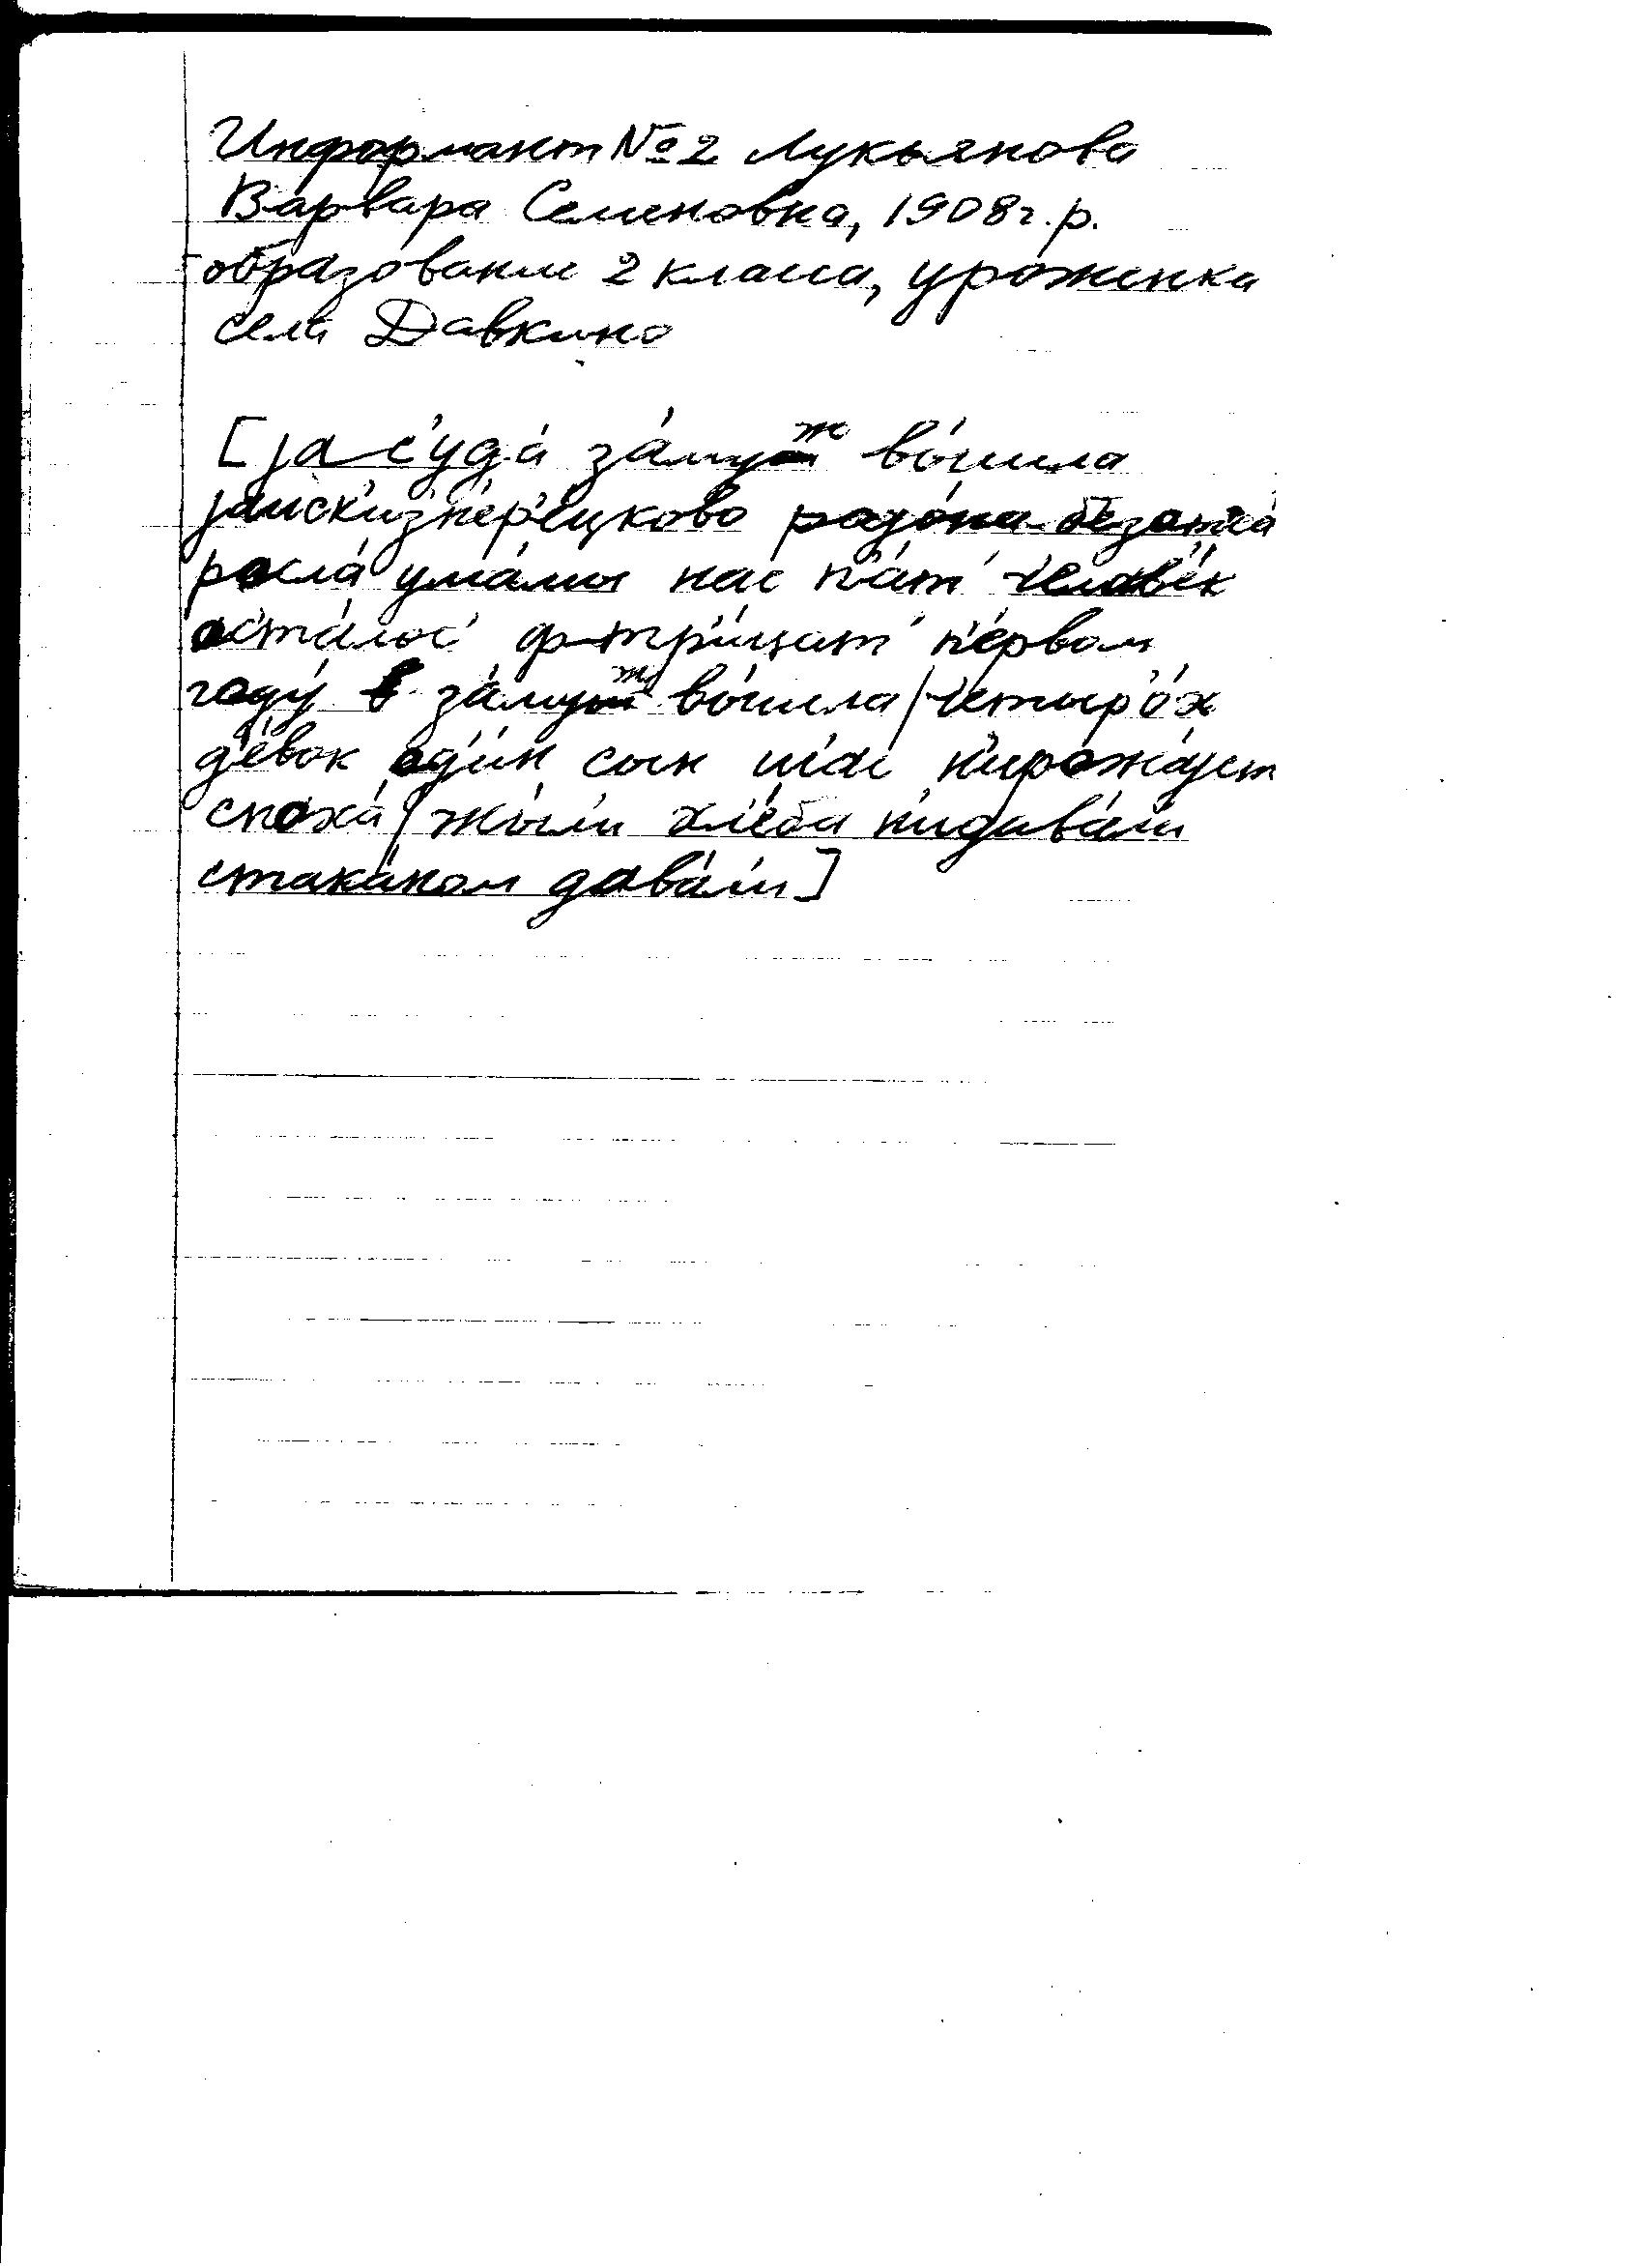 Информант №2 Лукьянова
Варвара Семеновна, 1908г.р.
образование 2 класса, уроженка
села Давкино
[jа с'уда́ за́муж вы́шла
рађо́на без отца́
росла́ у ма́мы нас п'ат' челов'е́к
оста́лос' ф-тр'и́цат' п'е́рвам
году́ в за́муж вы́шла/четыр'о́х
д'е́вок од'и́н сын
сноха́/жы́л'и хл'е́ба н'идава́л'и
стака́ном дава́л'и]